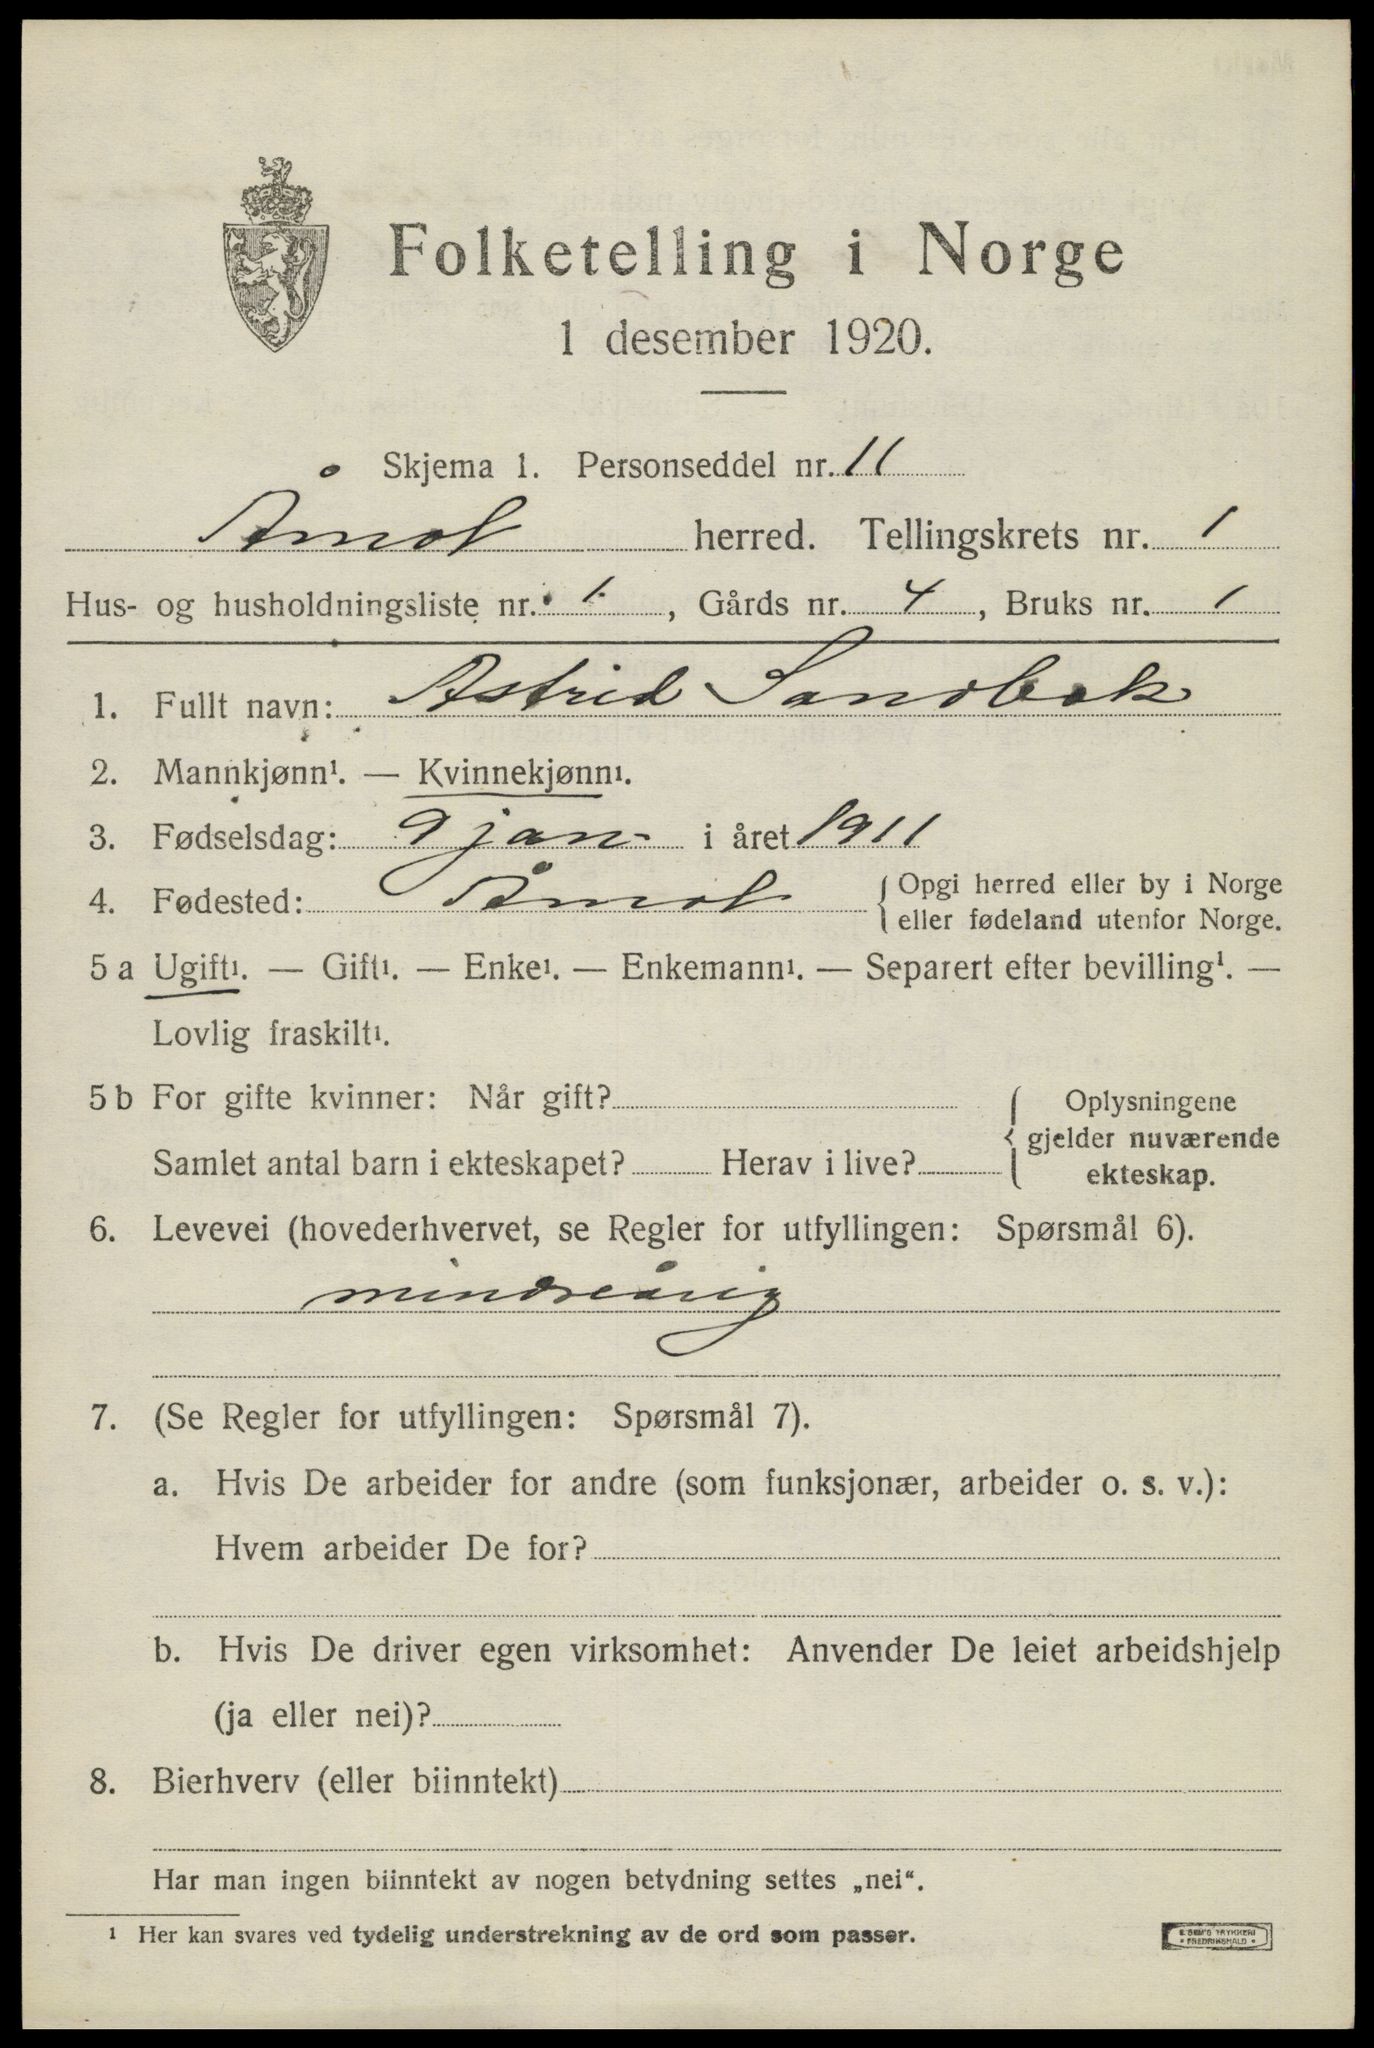 Folketelling i Norge
1 desember 1920.
Skjema 1. Personseddel nr. 11
Åmot herred. Tellingskrets nr. 1
Hus- og husholdningsliste nr. 1, Gårds nr. 4, Bruks nr. 1
1. Fullt navn: Astrid Sandbæk
2. Mannkjønn¹. — Kvinnekjønn¹.
3. Fødselsdag: 9 jan- i året 1911
4. Fødested: Åmot { Opgi herred eller by i Norge
eller fødeland utenfor Norge.
5 a Ugift¹. — Gift¹. — Enke¹. — Enkemann¹. — Separert efter bevilling¹. —
Lovlig fraskilt¹.
5 b For gifte kvinner: Når gift? { Oplysningene
gjelder nuværende
Samlet antal barn i ekteskapet? Herav i live? ekteskap.
6. Levevei (hovederhvervet, se Regler for utfyllingen: Spørsmål 6).
mindreårig
7. (Se Regler for utfyllingen: Spørsmål 7).
a. Hvis De arbeider for andre (som funksjonær, arbeider o. s. v.):
Hvem arbeider De for?
b. Hvis De driver egen virksomhet: Anvender De leiet arbeidshjelp
(ja eller nei)?
8. Bierhverv (eller biinntekt)
Har man ingen biinntekt av nogen betydning settes „nei“.
¹ Her kan svares ved tydelig understrekning av de ord som passer.
E. SEM'S TRYKKERI
• FREDRIKSHALD •